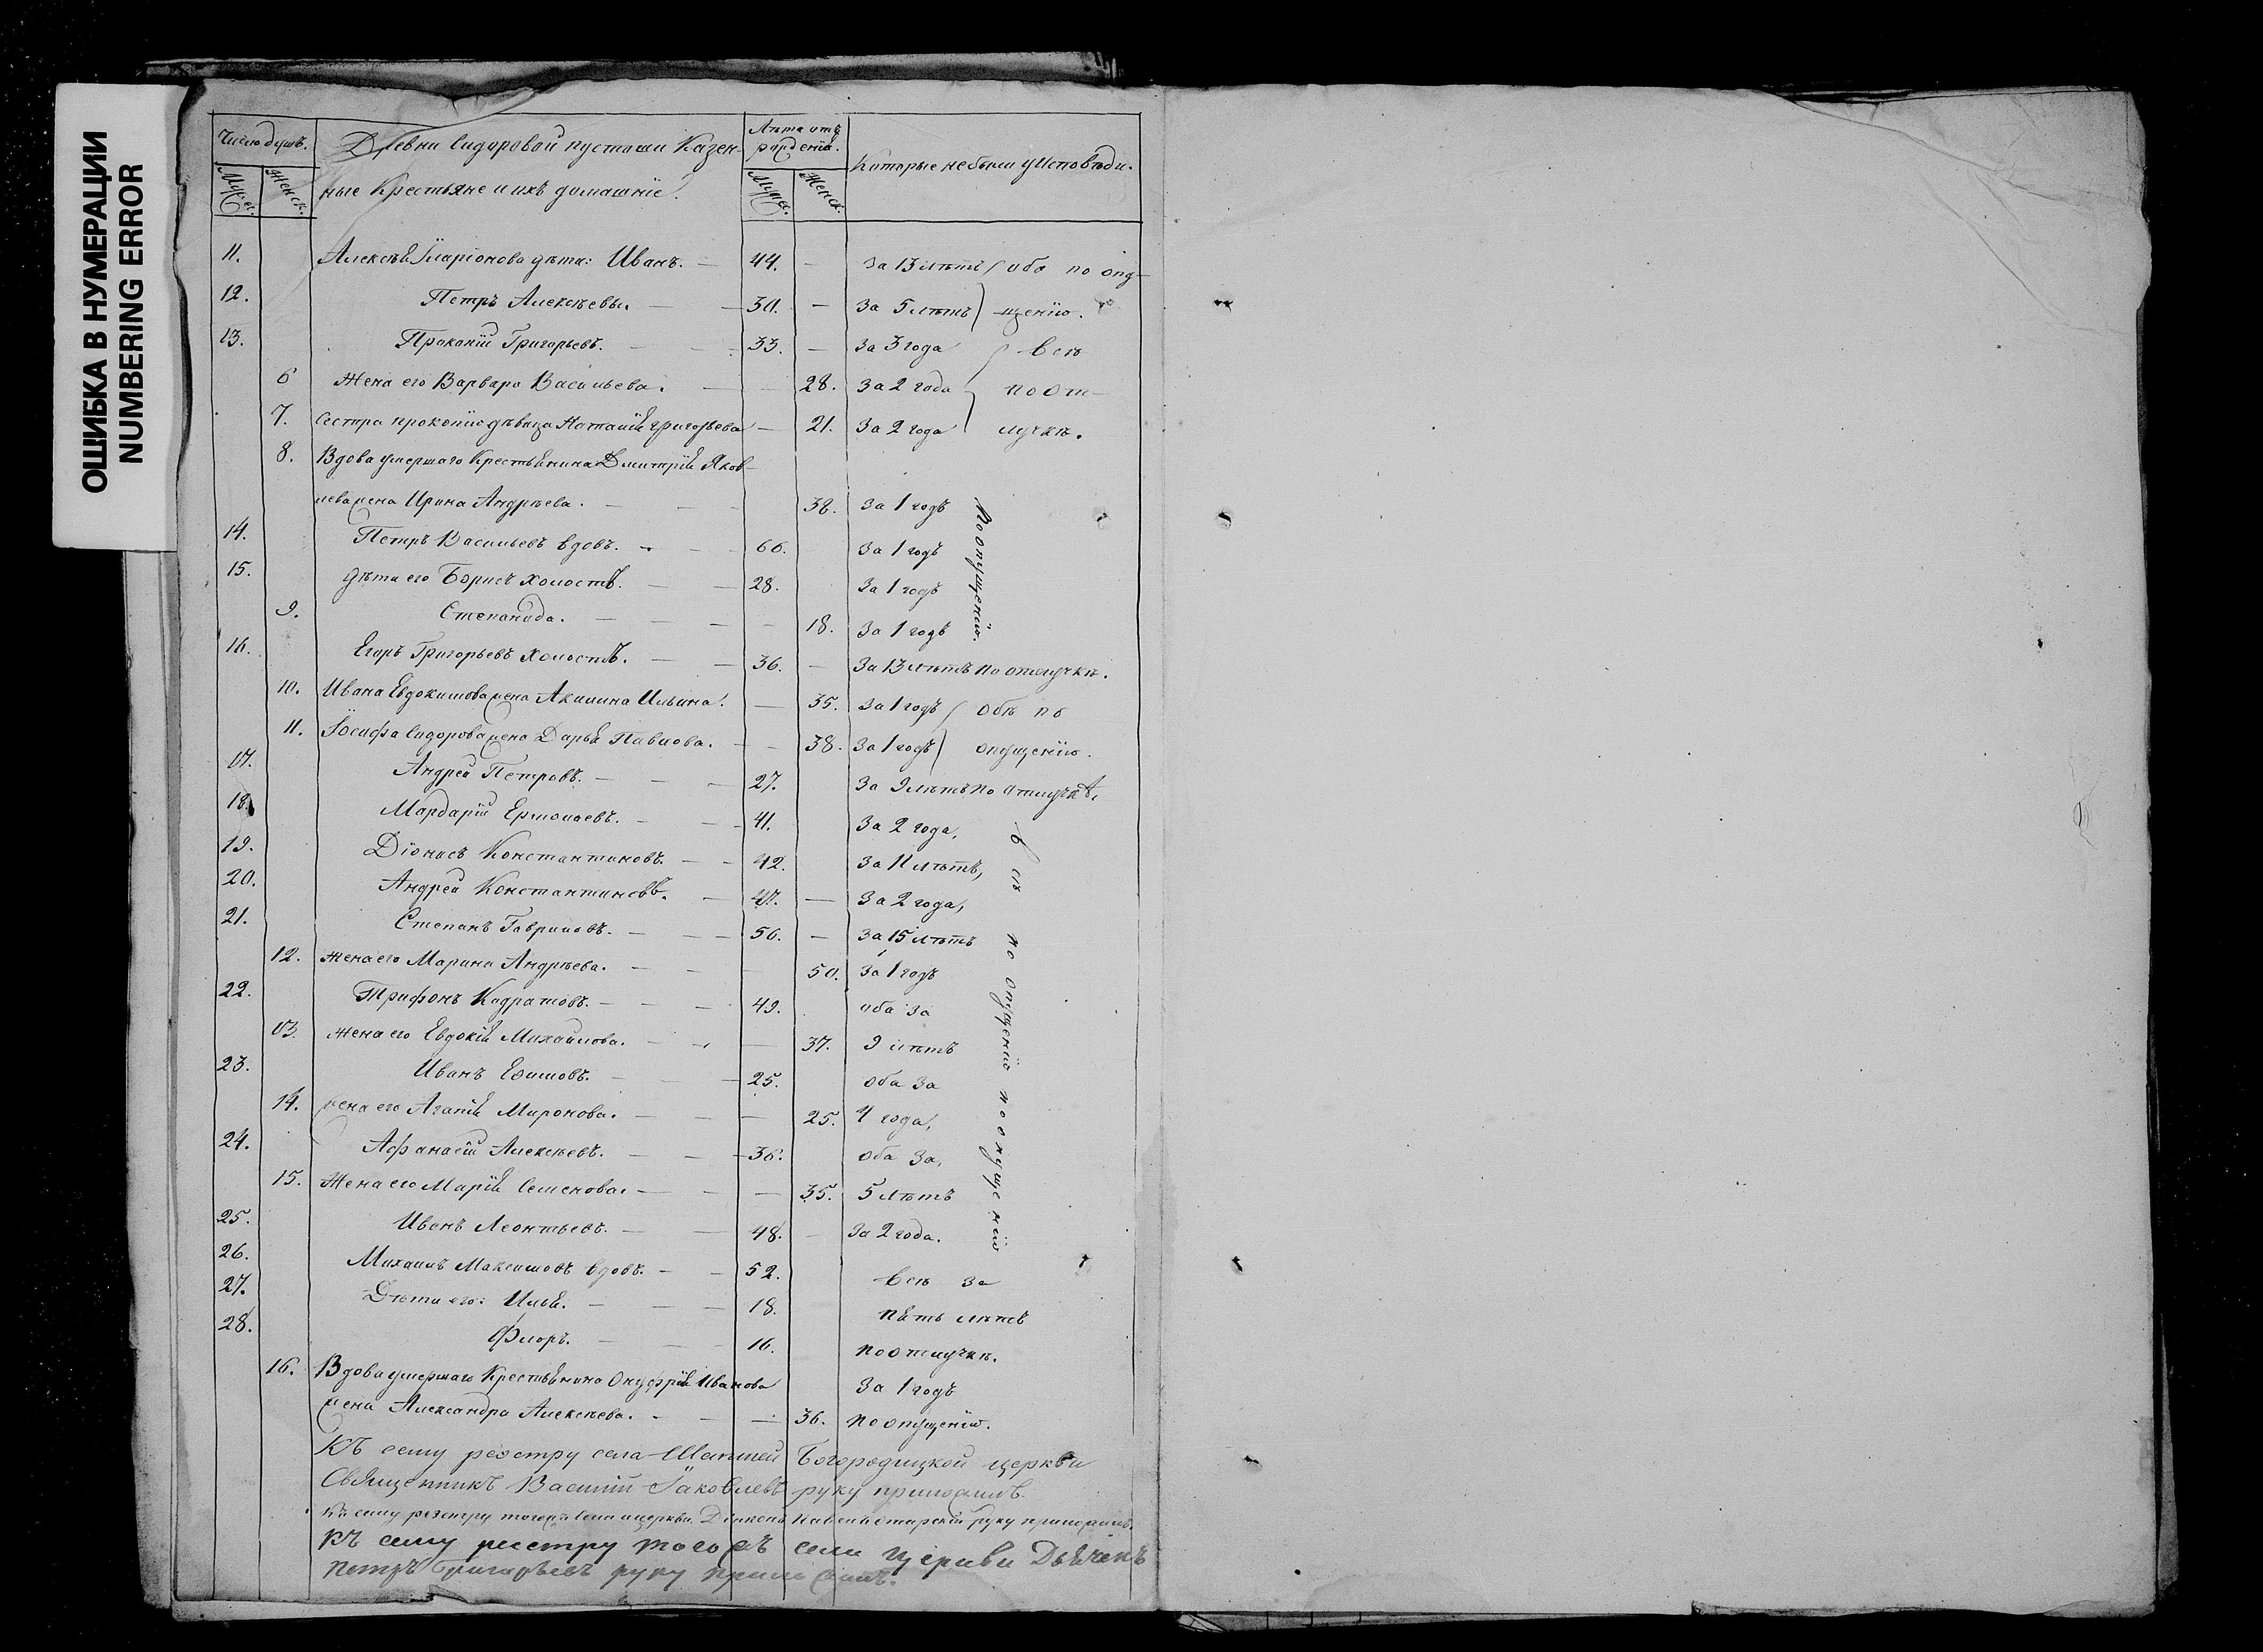 ОШИБКА В НУМЕРАЦИИ
NUMBERING ERROR
Число душъ. Древни Сидоровой пустоши Казен- Лѣта отъ рожденія. Которые небыли уисповѣди.
Мужес. Женск. ные Крестьяне иихъ домашніе. Мужес. Женск.
11. Алексѣя Иларіонова дѣти: Иванъ. — 44. — За 13 лѣтъ оба по опу-
12. Петръ Алексѣевы. — 30. — За 5 лѣтъ щенію.
13. Прокопій Григорьевъ. — 33. — За 3 года всѣ
6 Жена его Варвара Васильева. — 28. За 2 года по от-
7. Сестра прокопія дѣвица Наталія Григорьева — 21. За 2 года лучкѣ.
8. Вдова умершаго Крестьянина Дмитрія Яков-
лева жена Ирина Андрѣева. — 38. За 1 годъ
14. Петръ Васильевъ вдовъ. — 66. За 1 годъ
15. Дѣти его Борисъ холостъ. — 28. За 1 годъ
9. Степанида. — 18. За 1 годъ
по опущенію.
16. Егоръ Григорьевъ холостъ. — 36. — За 13 лѣтъ по отлучкѣ.
10. Ивана Евдокимова жена Акилина Ильина. — 35. За 1 годъ обѣ по
11. Іосифа Сидорова жена Дарья Павлова. — 38. За 1 годъ опущенію.
17. Андрей Петровъ. — 27. За 9 лѣтъ по отлучкѣ.
18. Мардарій Ермолаевъ. — 41. За 2 года,
19. Діонисъ Константиновъ. — 42. За 11 лѣтъ,
20. Андрей Константиновъ. — 47. — За 2 года,
21. Степанъ Гавриловъ. — 50. — За 15 лѣтъ
12. Жена его Марина Андрѣева. — 50. За 1 годъ
22. Трифонъ Кадратовъ. — 49. оба за
13. Жена его Евдокія Михайлова. — 37. 9 лѣтъ
23. Иванъ Ефимовъ. — 25. оба за
14. Жена его Агапія Миронова. — 25. 4 года,
24. Афанасій Алексѣевъ. — 36. оба за,
15. Жена его Марія Семенова. — 35. 5 лѣтъ
25. Иванъ Леонтьевъ. — 48. За 2 года.
всѣ по опущенію по опущенію
26. Михаилъ Максимовъ вдовъ. — 52. всѣ за
27. Дѣти его: Илья. — 18. пять лѣтъ
28. Флоръ. — 16. по отлучкѣ.
16. Вдова умершаго Крестьянина Онуфрія Иванова За 1 годъ
жена Александра Алексѣева. — 36. по опущенію.
Къ сему реэстру села Богородицкой церкви
Священникъ Василій Іаковлевъ руку приложилъ.
Къ сему реэстру тогожъ села церкви руку приложилъ.
Къ сему реестру тогожъ села церкви Дьячекъ
Петръ Григорьевъ руку приложилъ.